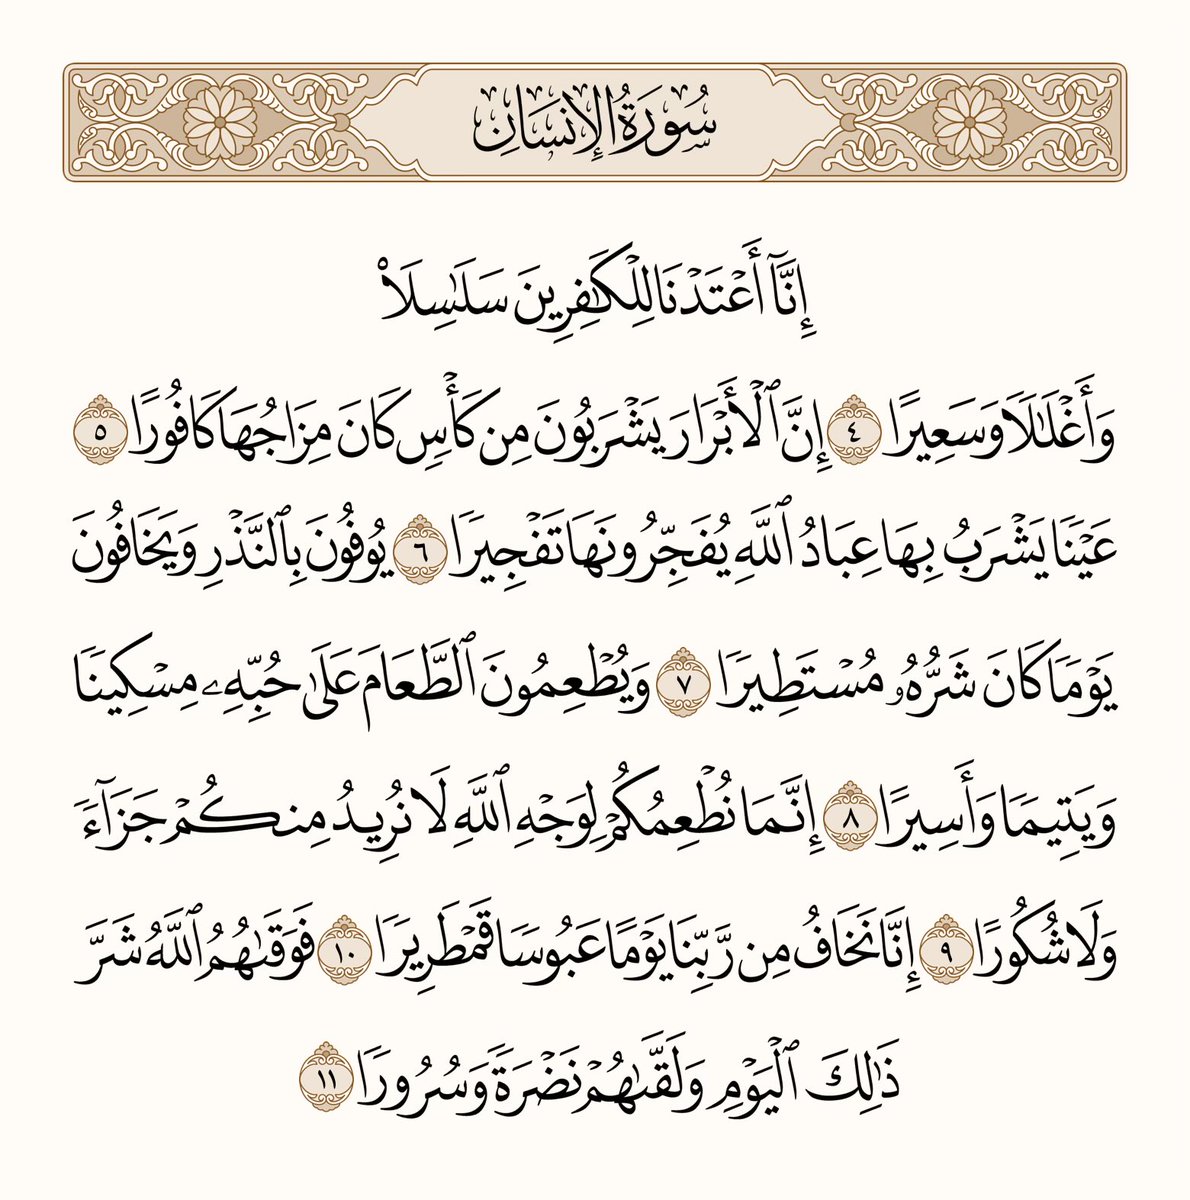 سُورَةُ الإِنسَانِ
إِنَّآ أَعۡتَدۡنَا لِلۡكَٰفِرِينَ سَلَٰسِلَاْ
وَأَغۡلَٰلٗا وَسَعِيرًا ٤ إِنَّ ٱلۡأَبۡرَارَ يَشۡرَبُونَ مِن كَأۡسٖ كَانَ مِزَاجُهَا كَافُورًا ٥
عَيۡنٗا يَشۡرَبُ بِهَا عِبَادُ ٱللَّهِ يُفَجِّرُونَهَا تَفۡجِيرٗا ٦ يُوفُونَ بِٱلنَّذۡرِ وَيَخَافُونَ
يَوۡمٗا كَانَ شَرُّهُۥ مُسۡتَطِيرٗا ٧ وَيُطۡعِمُونَ ٱلطَّعَامَ عَلَىٰ حُبِّهِۦ مِسۡكِينٗا
وَيَتِيمٗا وَأَسِيرًا ٨ إِنَّمَا نُطۡعِمُكُمۡ لِوَجۡهِ ٱللَّهِ لَا نُرِيدُ مِنكُمۡ جَزَآءٗ
وَلَا شُكُورًا ٩ إِنَّا نَخَافُ مِن رَّبِّنَا يَوۡمًا عَبُوسٗا قَمۡطَرِيرٗا ١٠ فَوَقَىٰهُمُ ٱللَّهُ شَرَّ
ذَٰلِكَ ٱلۡيَوۡمِ وَلَقَّىٰهُمۡ نَضۡرَةٗ وَسُرُورٗا ١١